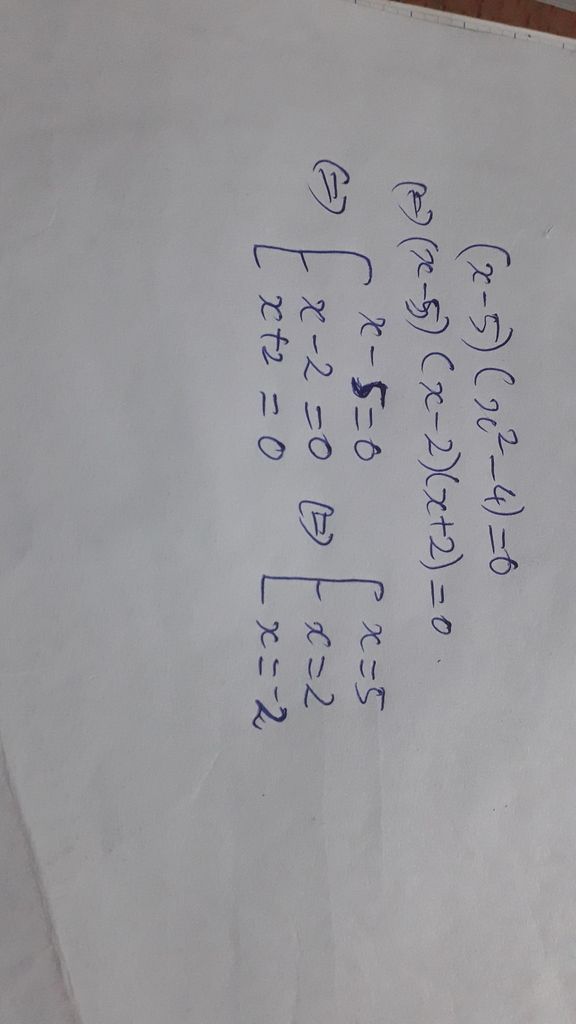 (x-5)(x²-4)=0
(=) (x-5)(x-2)(x+2)=0.
(=) [ x-5=0 (=) [ x=5
x-2=0 x=2
x+2=0 x=-2